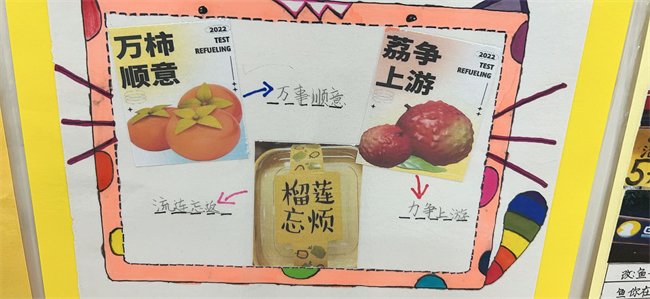 2022
TEST
REFUELING
万柿
顺意
万事顺意
2022
TEST
REFUELING
荔争
上游
力争上游
榴莲
忘烦
流连忘返
改:鱼
鱼你在